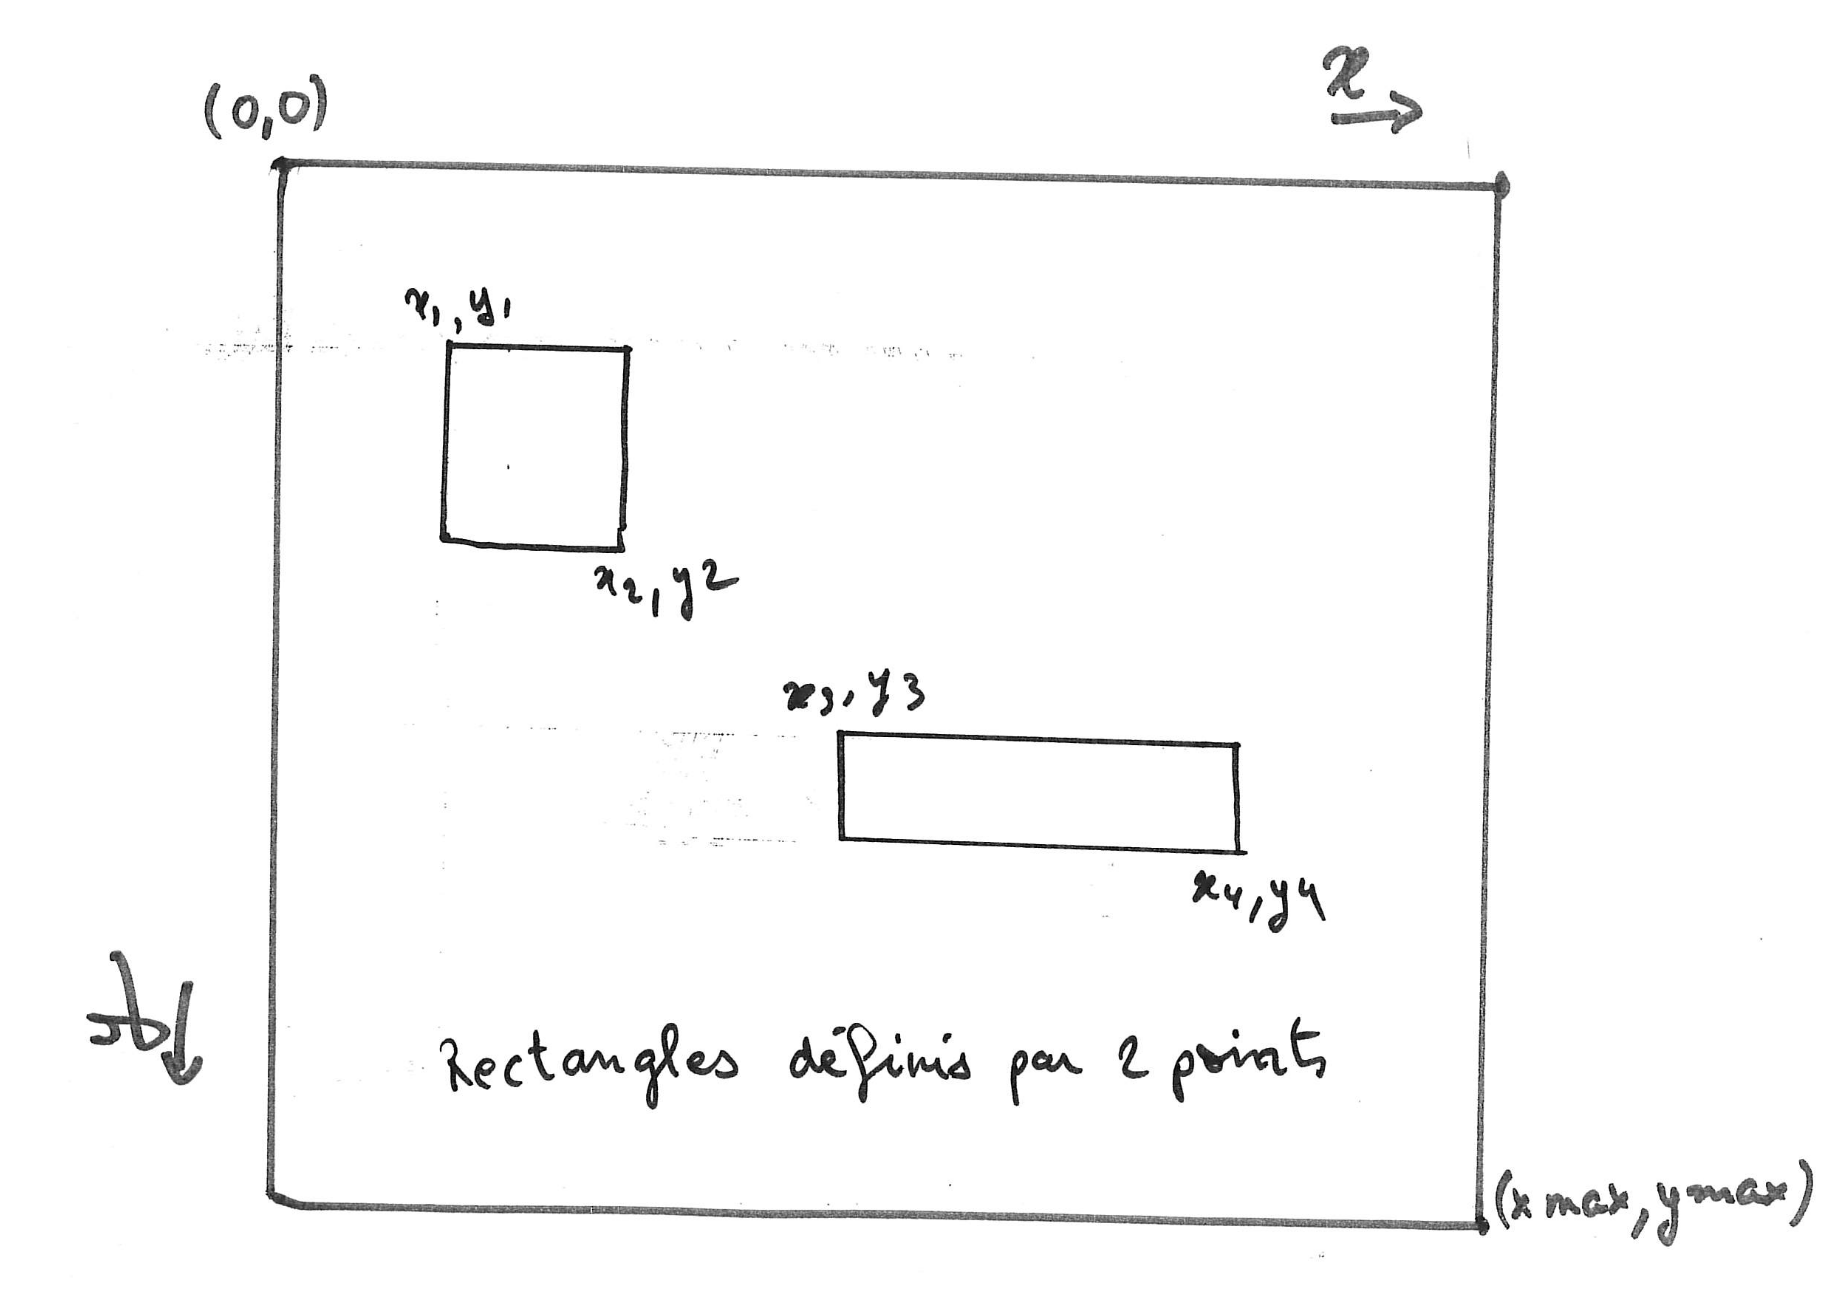 (0,0)
x
x1, y1
x2, y2
x3, y3
x4, y4
y
Rectangles définis par 2 points
(x max, y max)